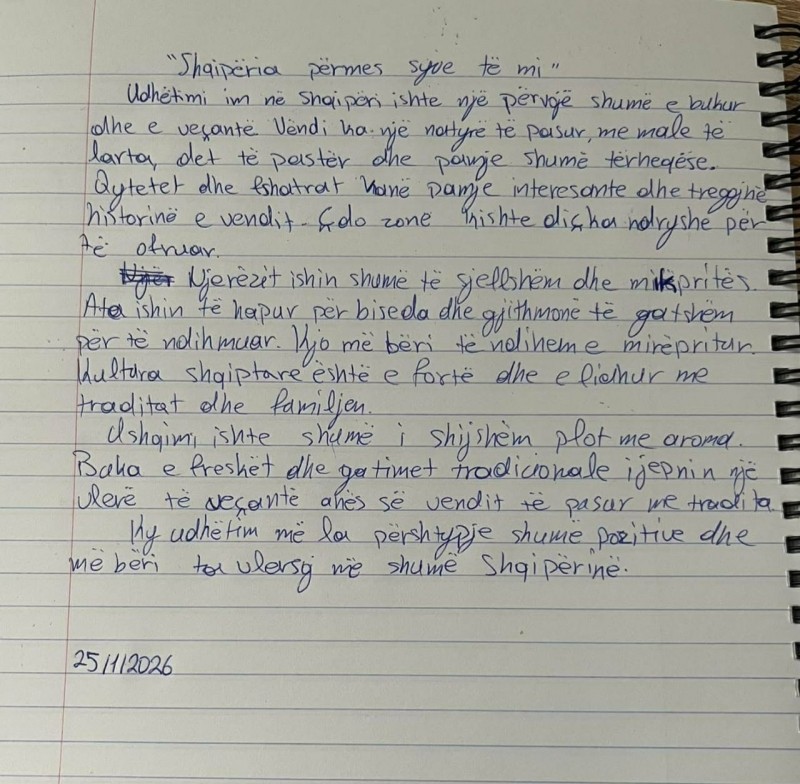 "Shqipëria përmes syve të mi"
Udhëtimi im në Shqipëri ishte një përvojë shumë e bukur
dhe e veçantë Vëndi ka një natyrë të pasur, me male të
larta, det të pastër dhe pamje shumë tërheqëse.
Qytetet dhe fshatrat kanë pamje interesante dhe tregojnë
historinë e vendit. Çdo zonë kishte diçka ndryshe për
të ofruar.
Njerëzit ishin shumë të sjellshëm dhe mikpritës.
Ata ishin të hapur për biseda dhe gjithmonë të gatshëm
për të ndihmuar. Kjo më bëri të ndihem e mirëpritur.
Kultura shqiptare është e fortë dhe e lidhur me
traditat dhe familjen.
Ushqimi, ishte shumë i shijshëm plot me aroma.
Buka e freskët dhe gatimet tradicionale i jepnin një
vlerë të veçantë ahës së vendit të pasur me tradita
Ky udhëtim më la përshtypje shumë pozitive dhe
më bëri ta vlersoj më shumë Shqipërinë.
25/1/2026